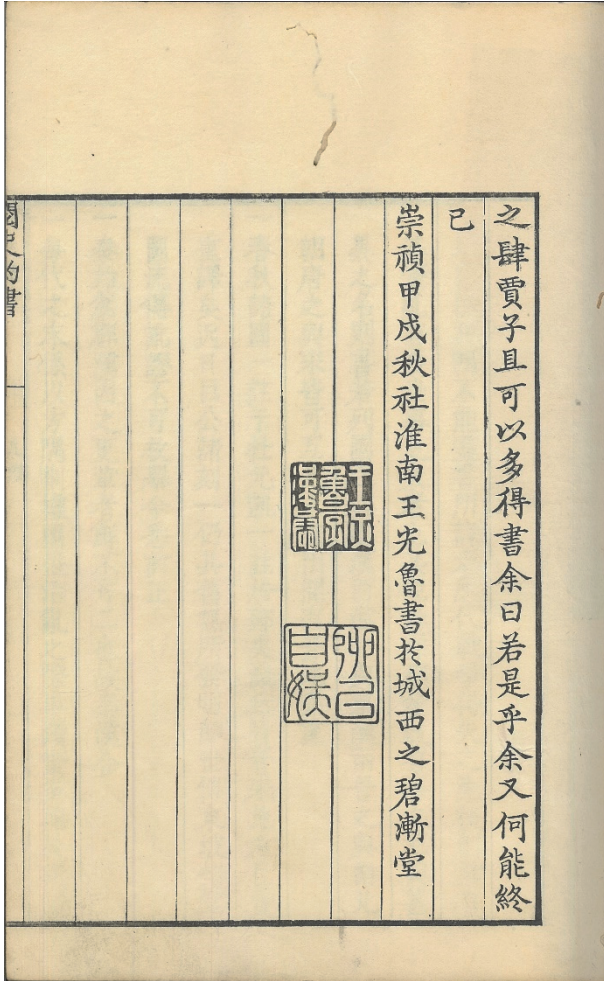 之肆賈子且可以多得書余曰若是乎余又何能終
已
崇禎甲戌秋社淮南王光魯書於城西之碧漸堂
聊以
自娛
閱史約書
一